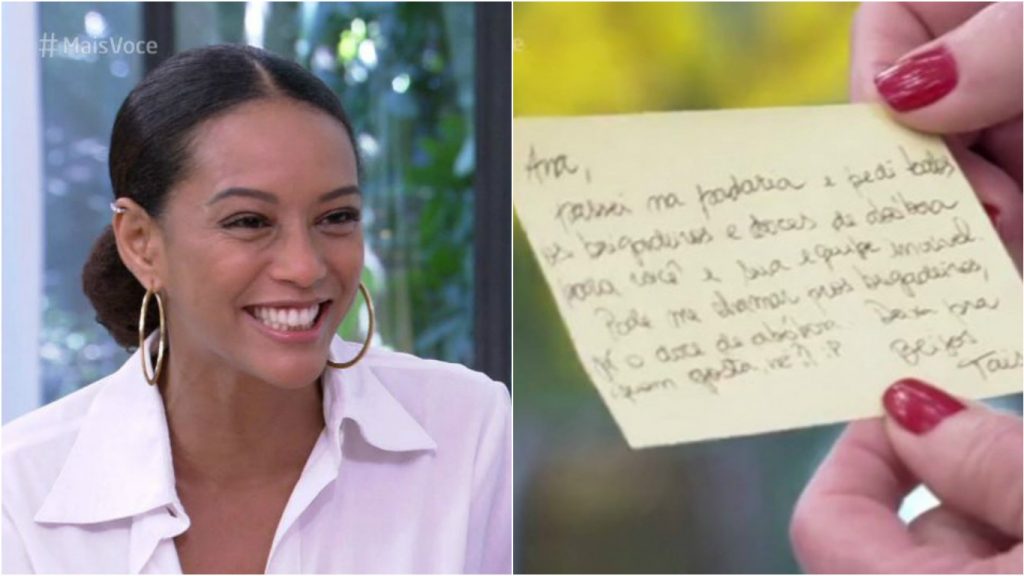 #MaisVoce
Ana,
passei na padaria e pedi todos
os brigadeiros e doces de abóbora
para você e sua equipe incrível.
Pode me chamar pros brigadeiros,
o doce de abóbora. Deixa pra
quem gosta, né?! :P Beijos
Tais